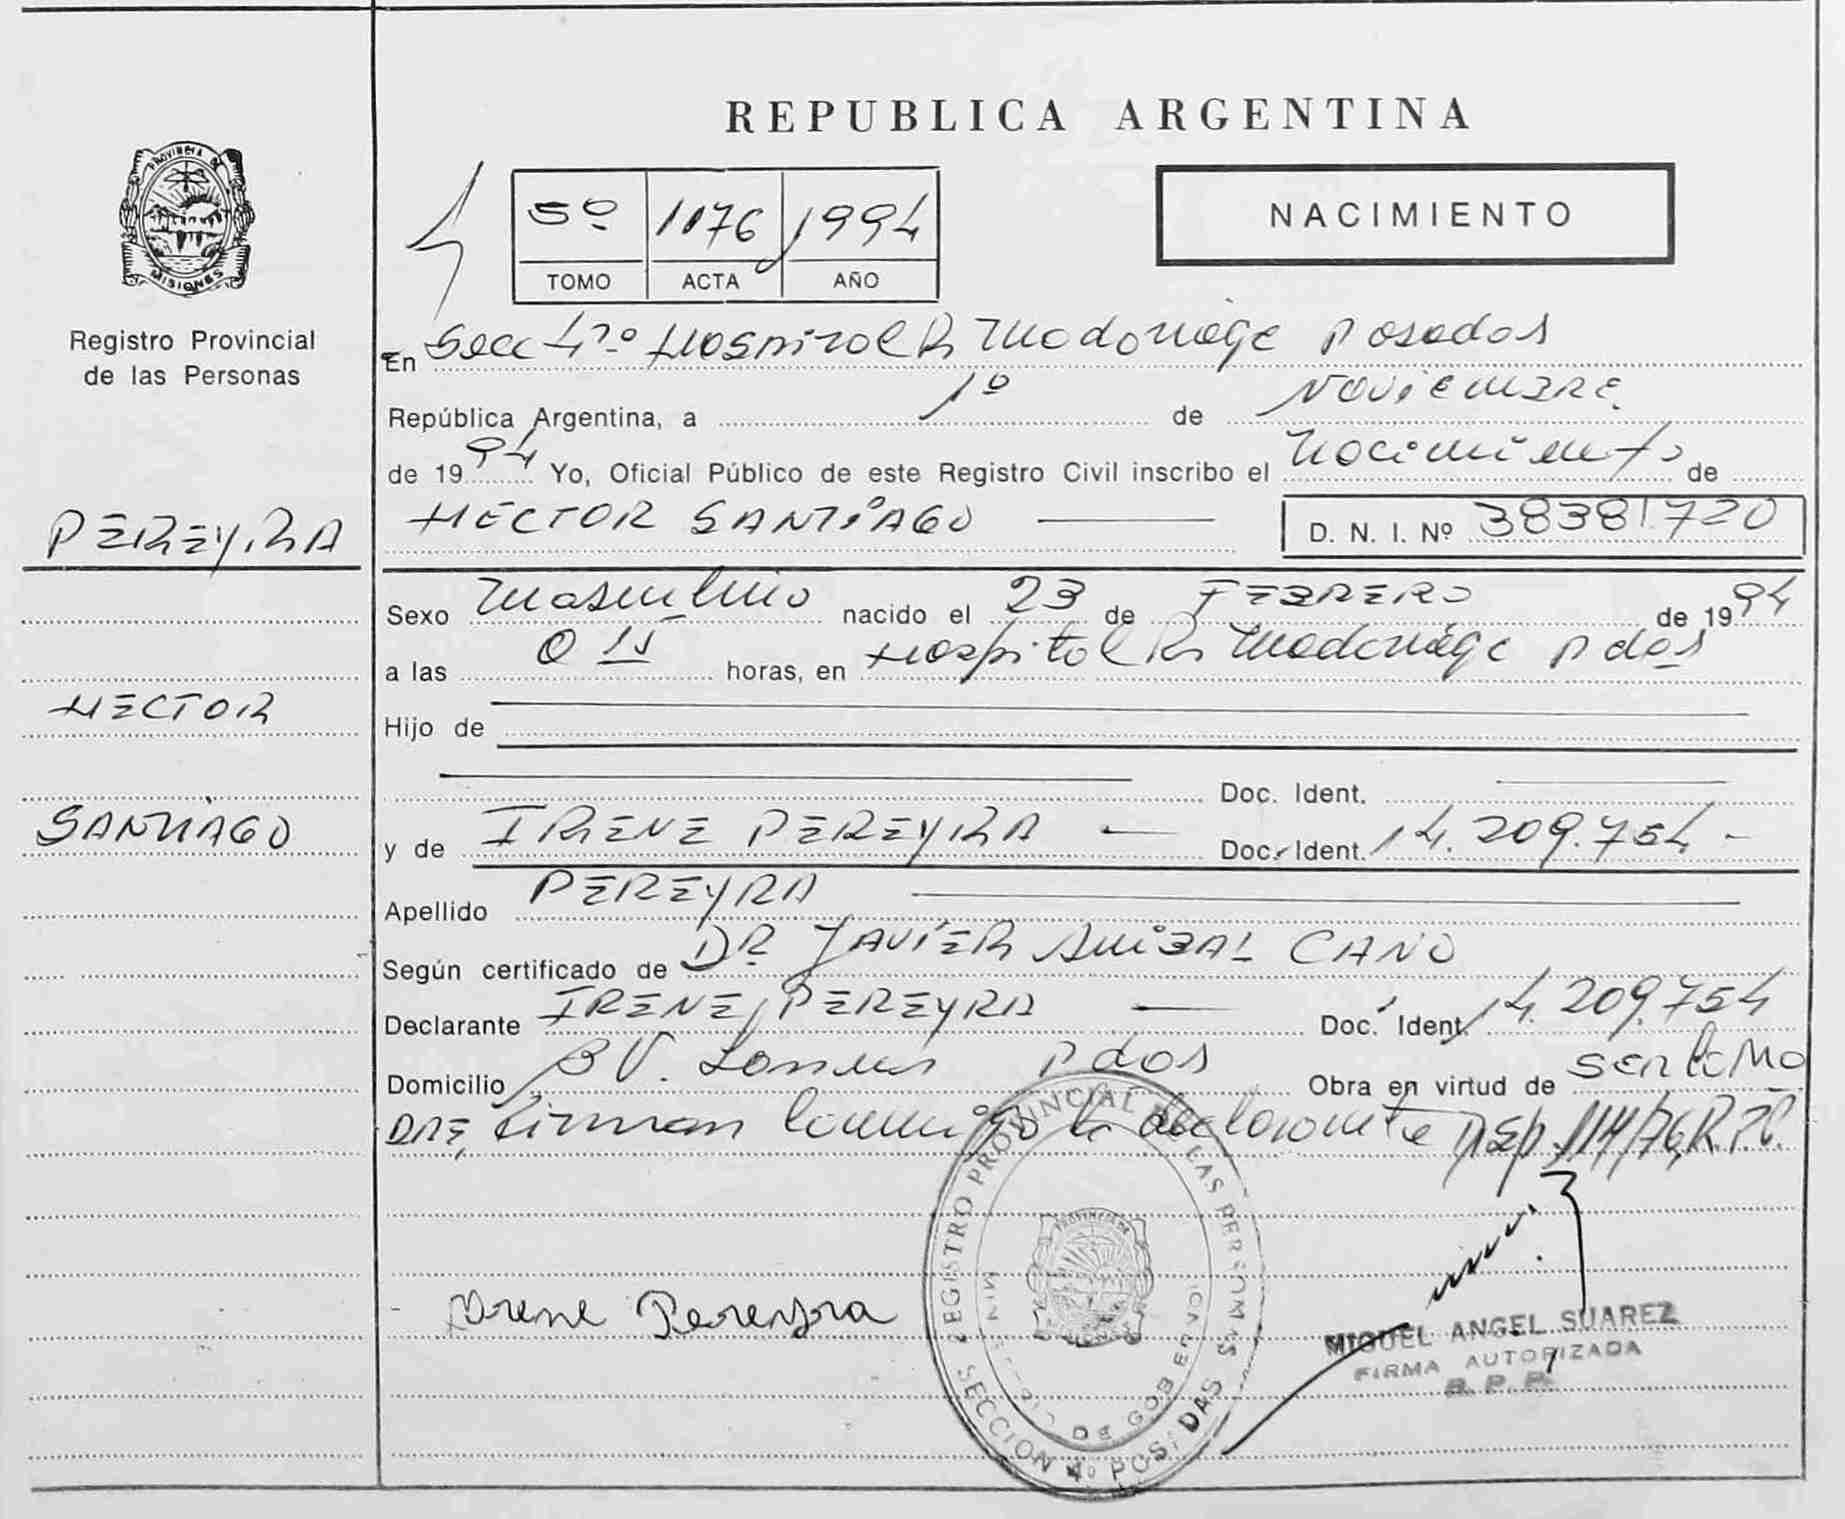 REPUBLICA ARGENTINA
PROVINCIA DE
MISIONES
Registro Provincial
de las Personas
5º 1176 1994
TOMO ACTA AÑO
NACIMIENTO
En Secc 4º Hospital R Madariaga Posadas
República Argentina, a 1º de NOVIEMBRE
de 1994 Yo, Oficial Público de este Registro Civil inscribo el Nacimiento de
HECTOR SANTIAGO D. N. I. Nº 38381720
PEREYRA
HECTOR
SANTIAGO
Sexo Masculino nacido el 23 de FEBRERO de 1994
a las 0 15 horas, en Hospital R Madariaga Pdas
Hijo de
Doc. Ident.
y de IRENE PEREYRA Doc. Ident. 14.209.754
Apellido PEREYRA
Según certificado de DR JAVIER ANIBAL CANO
Declarante IRENE PEREYRA Doc. Ident. 14.209.754
Domicilio Bº Pdas Obra en virtud de ser la MA
DRE, firman conmigo la declarante Disp. 114/76, R.P.P.
Irene Pereyra
REGISTRO PROVINCIAL DE LAS PERSONAS
MINISTERIO DE GOBIERNO
PROVINCIA DE
SECCION 4º POSADAS
MIGUEL ANGEL SUAREZ
FIRMA AUTORIZADA
R. P. P.